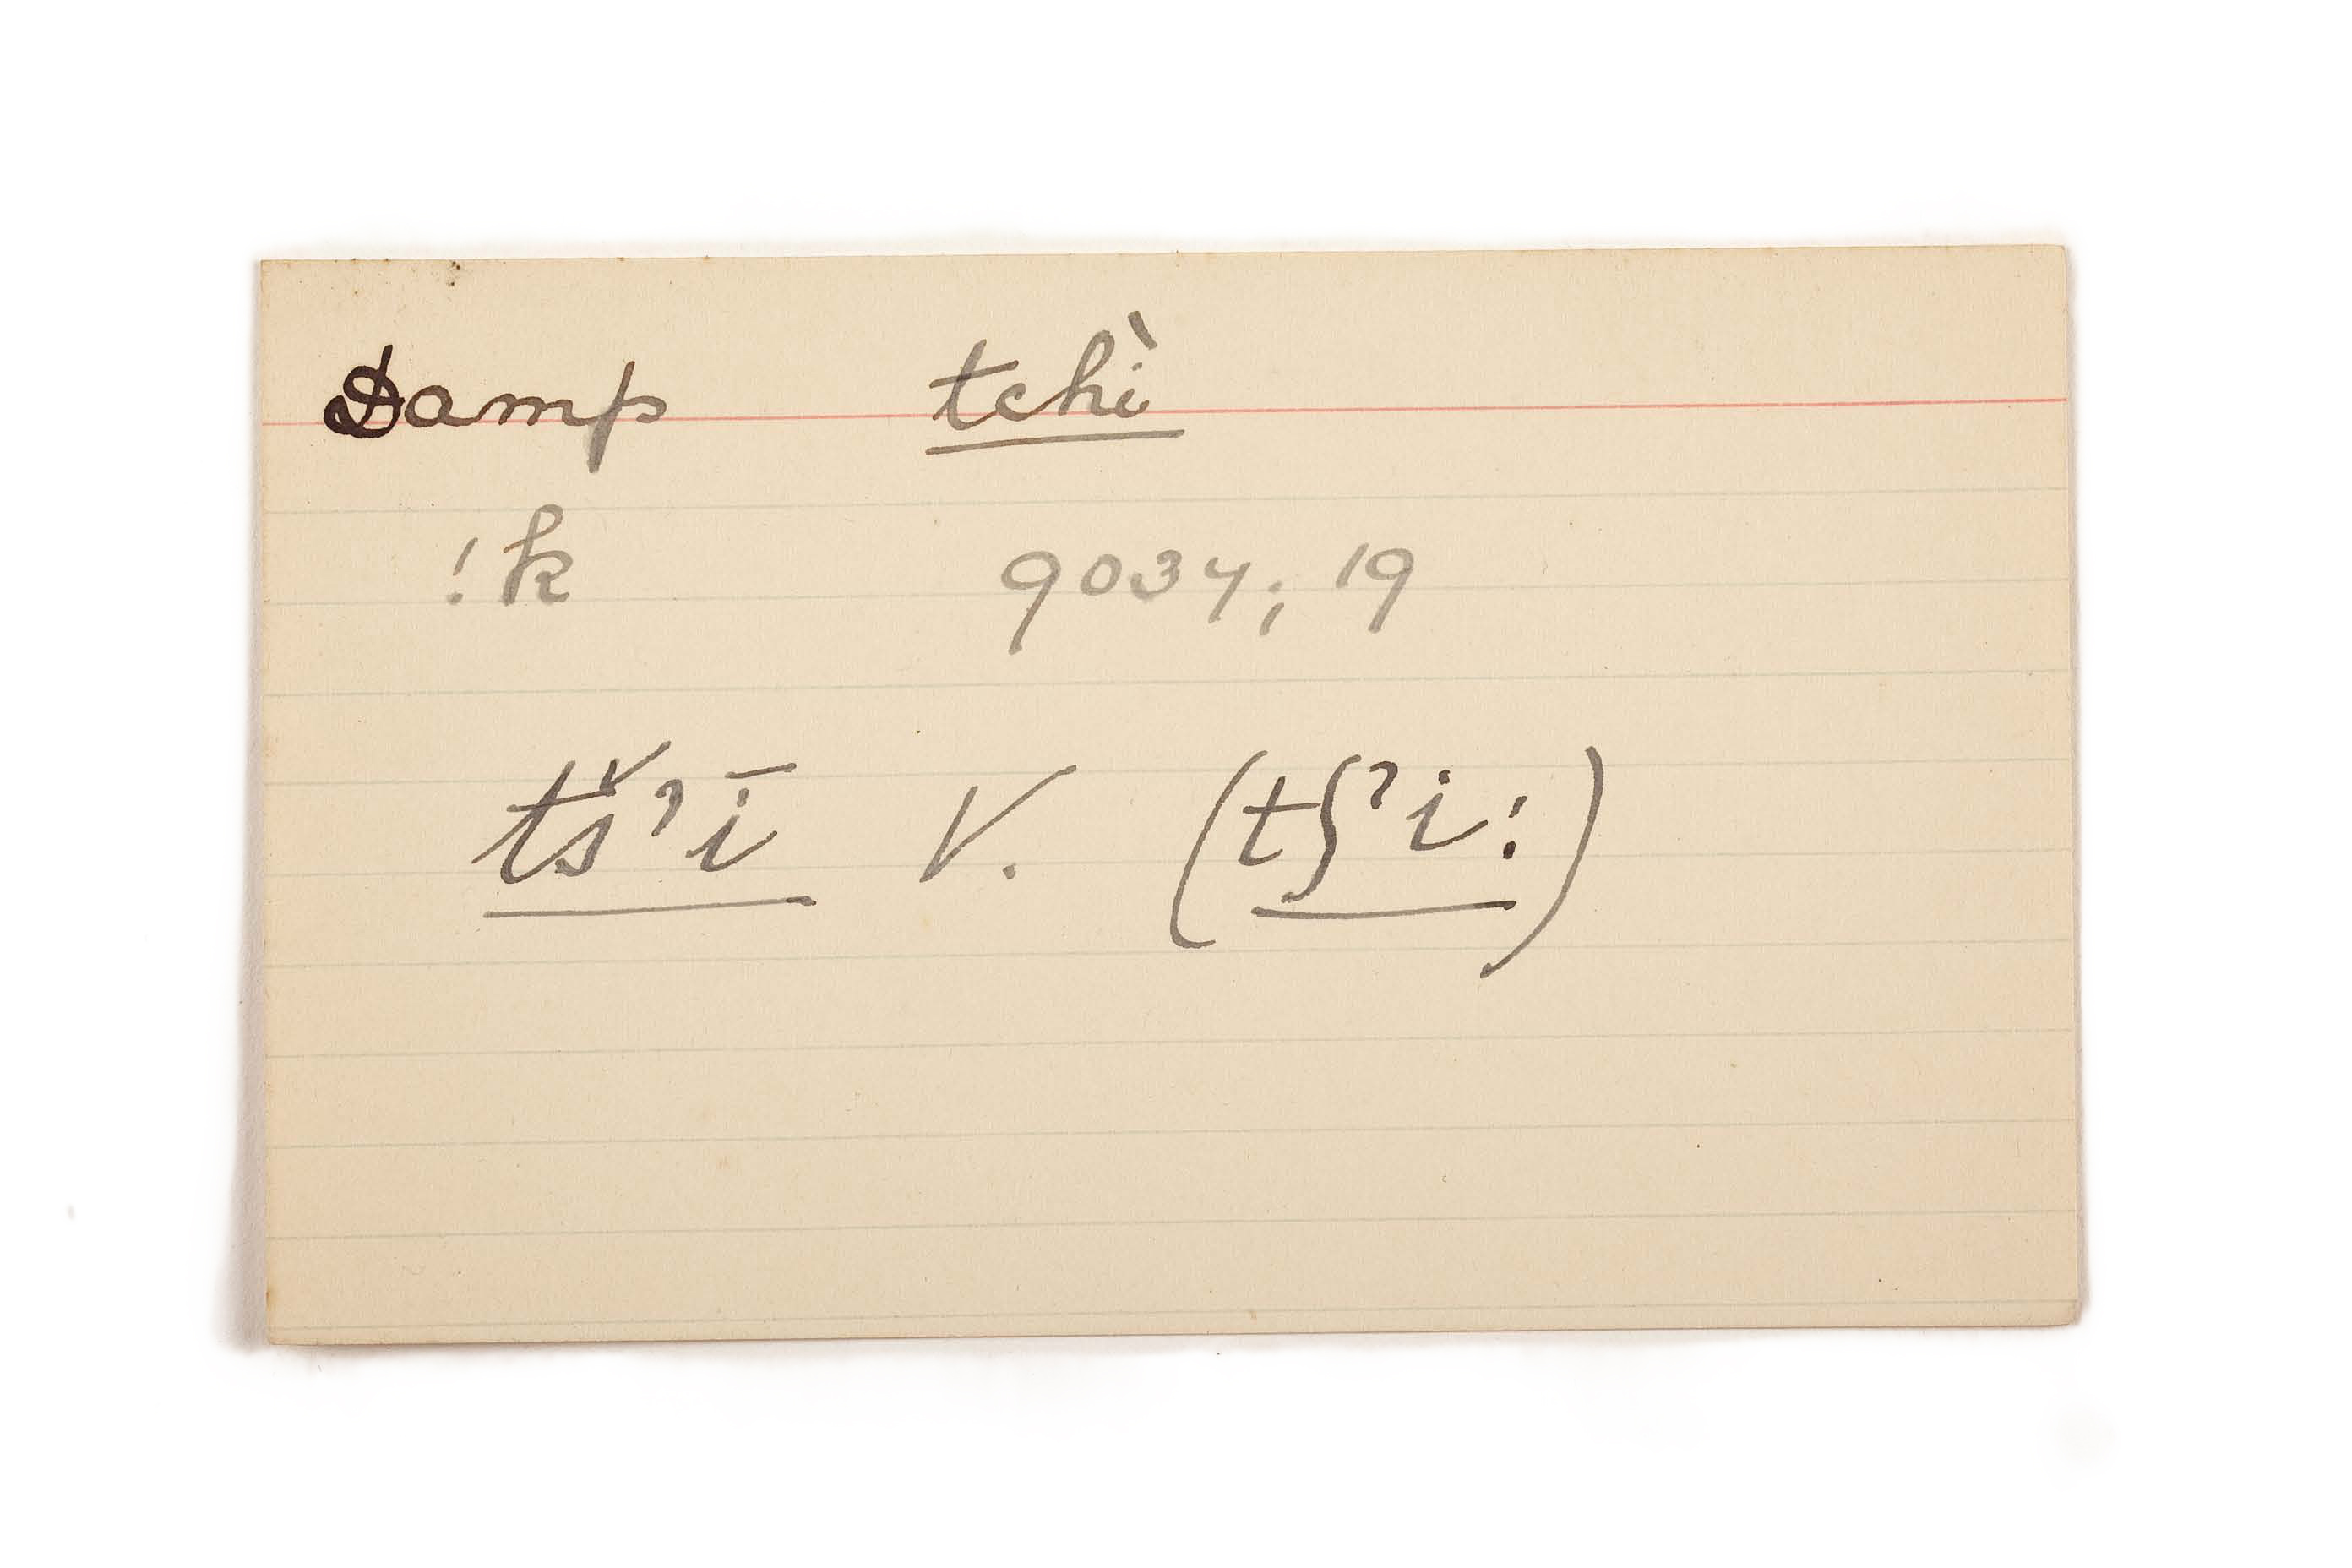 Damp tchì
!k 9034; 19
tšʾī V. (tʃʾi:)